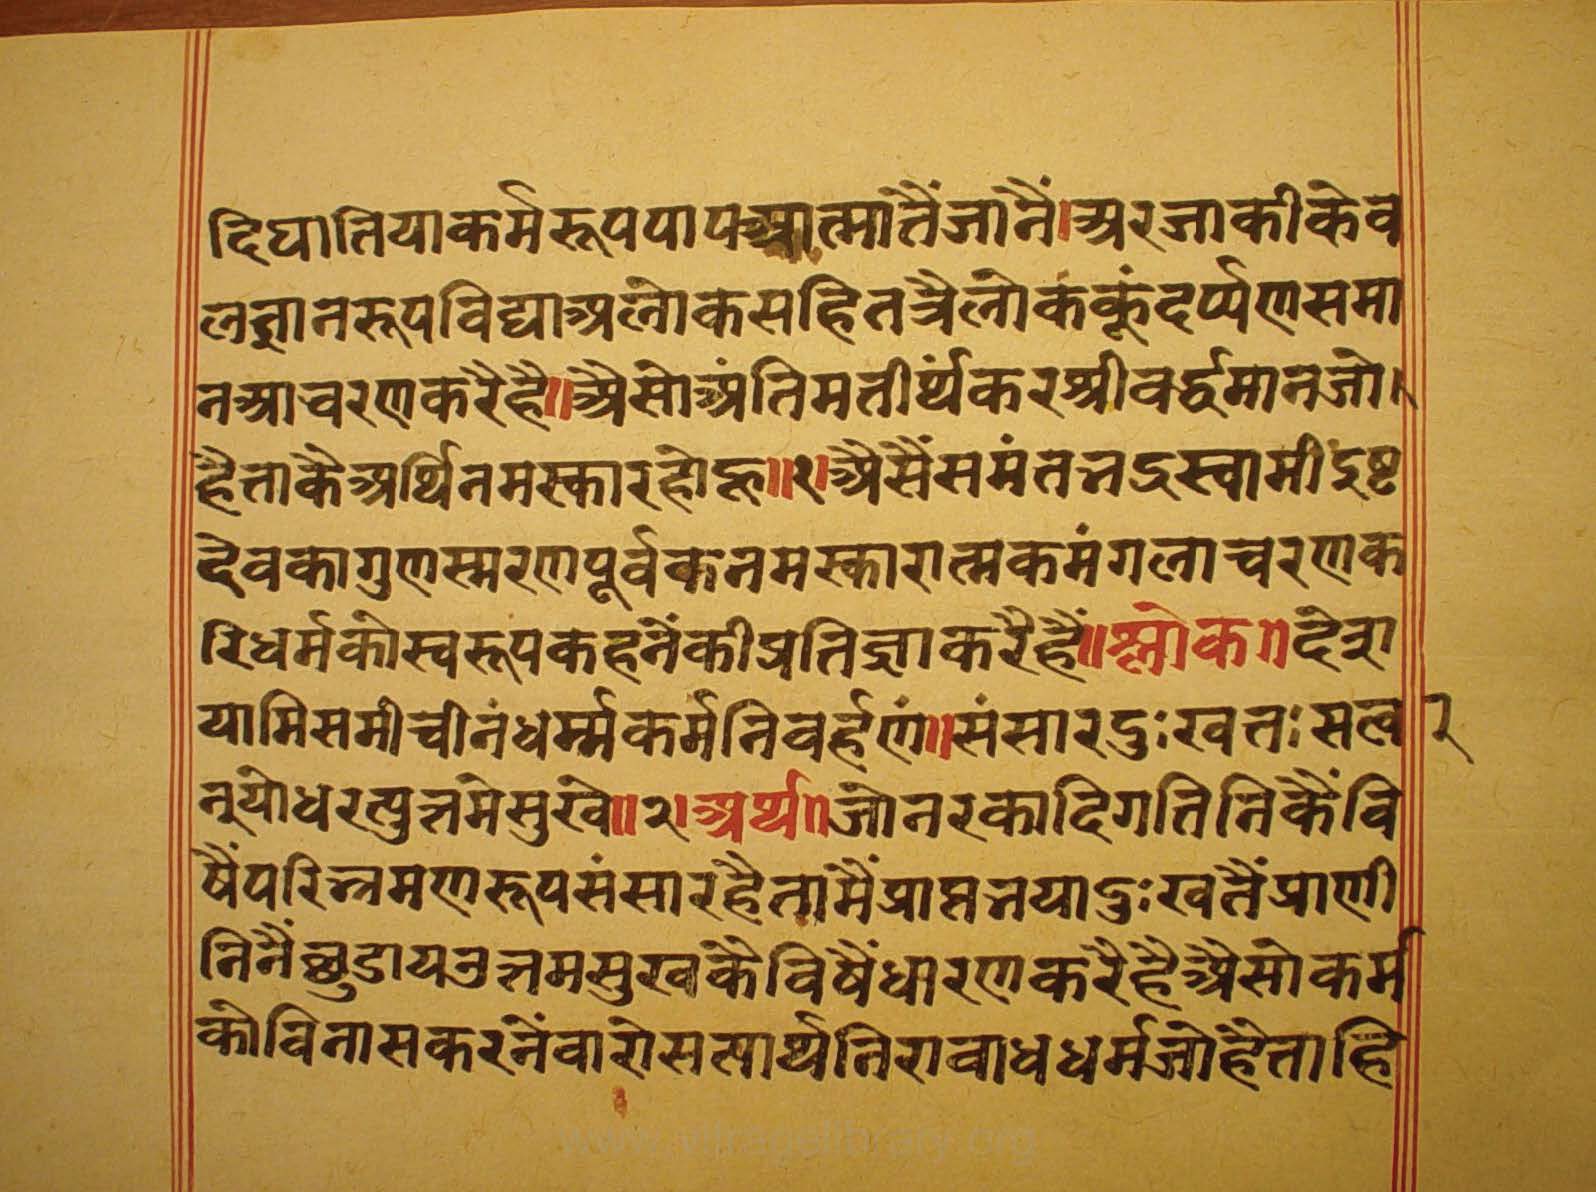 दिघातियाकर्मरूपपापआत्मातैंजानैं।अरजाकीकेव
लज्ञानरूपविद्याअलोकसहितत्रैलोककूंदर्प्पणसमा
नआचरणकरैहै॥अैसोअंतिमतीर्थंकरश्रीवर्द्धमानजो।
हैताकैअर्थिनमस्कारहोहू॥१।अैसैंसमंतभद्रस्वामीइष्ट
देवकागुणस्मरणपूर्वकनमस्कारात्मकमंगलाचरणक
रिधर्मकोस्वरूपकहनेंकीप्रतिज्ञाकरैहैं॥श्लोक॥देश
यामिसमीचीनंधर्म्मकर्मनिवर्हणं॥संसारदुःखतःसत्व २
न्योधरत्युत्तमेसुखे॥२।अर्थ॥जोनरकादिगतिनिकैंवि
षैंपरिभ्रमणरूपसंसारहैतामैंप्राप्तभयादुःखतैंप्राणी
निनैंछुडायउत्तमसुखकैविषैंधारणकरैहैअैसोकर्म
कोविनासकरनेंवारोसत्यार्थनिरावाधधर्मजोहैताहि
www.vitragelibrary.org